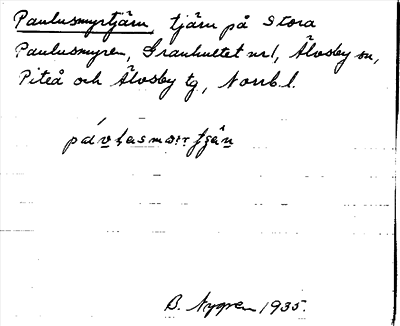 Paulusmyrtjärn, tjärn på Stora
Paulusmyren, Granhultet nr 1, Älvsby sn,
Piteå och Älvsby tg, Norrb. l.
B. Nygren 1935.